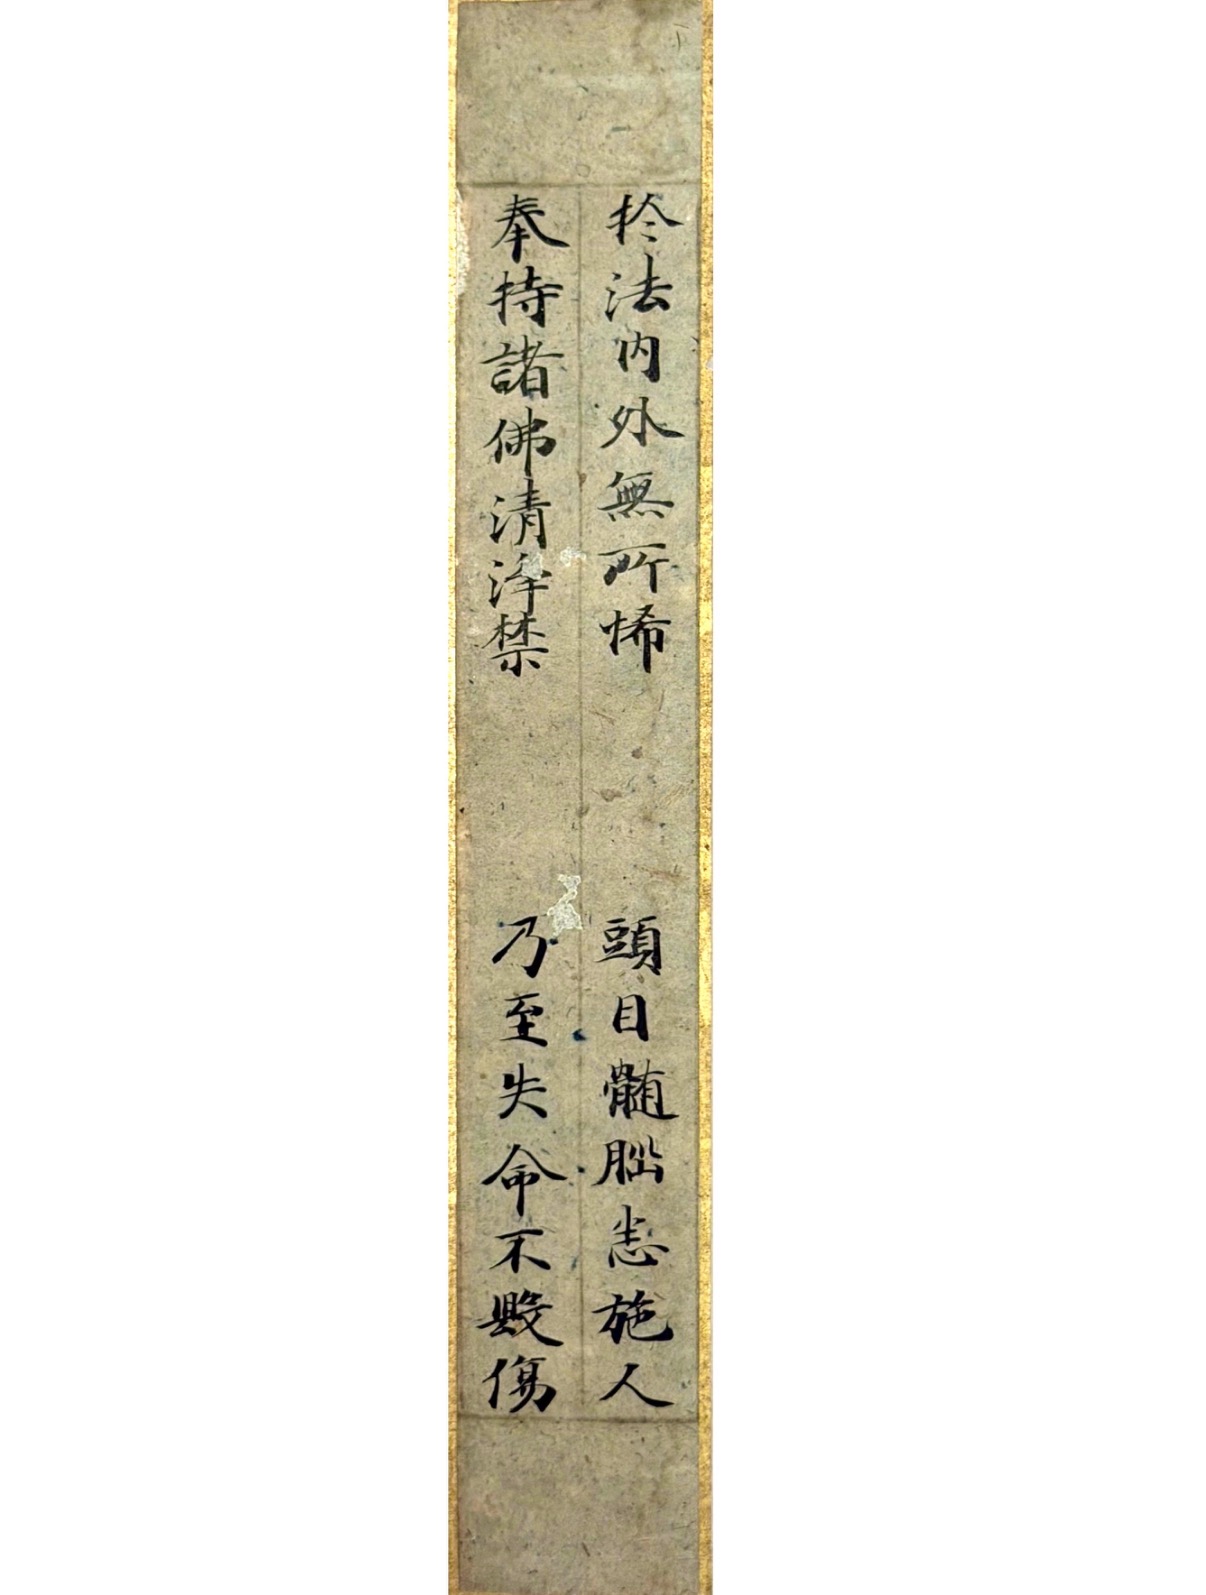 於法内外無所悕 頭目髄脳悉施人
奉持諸佛清浄禁 乃至失命不毀傷